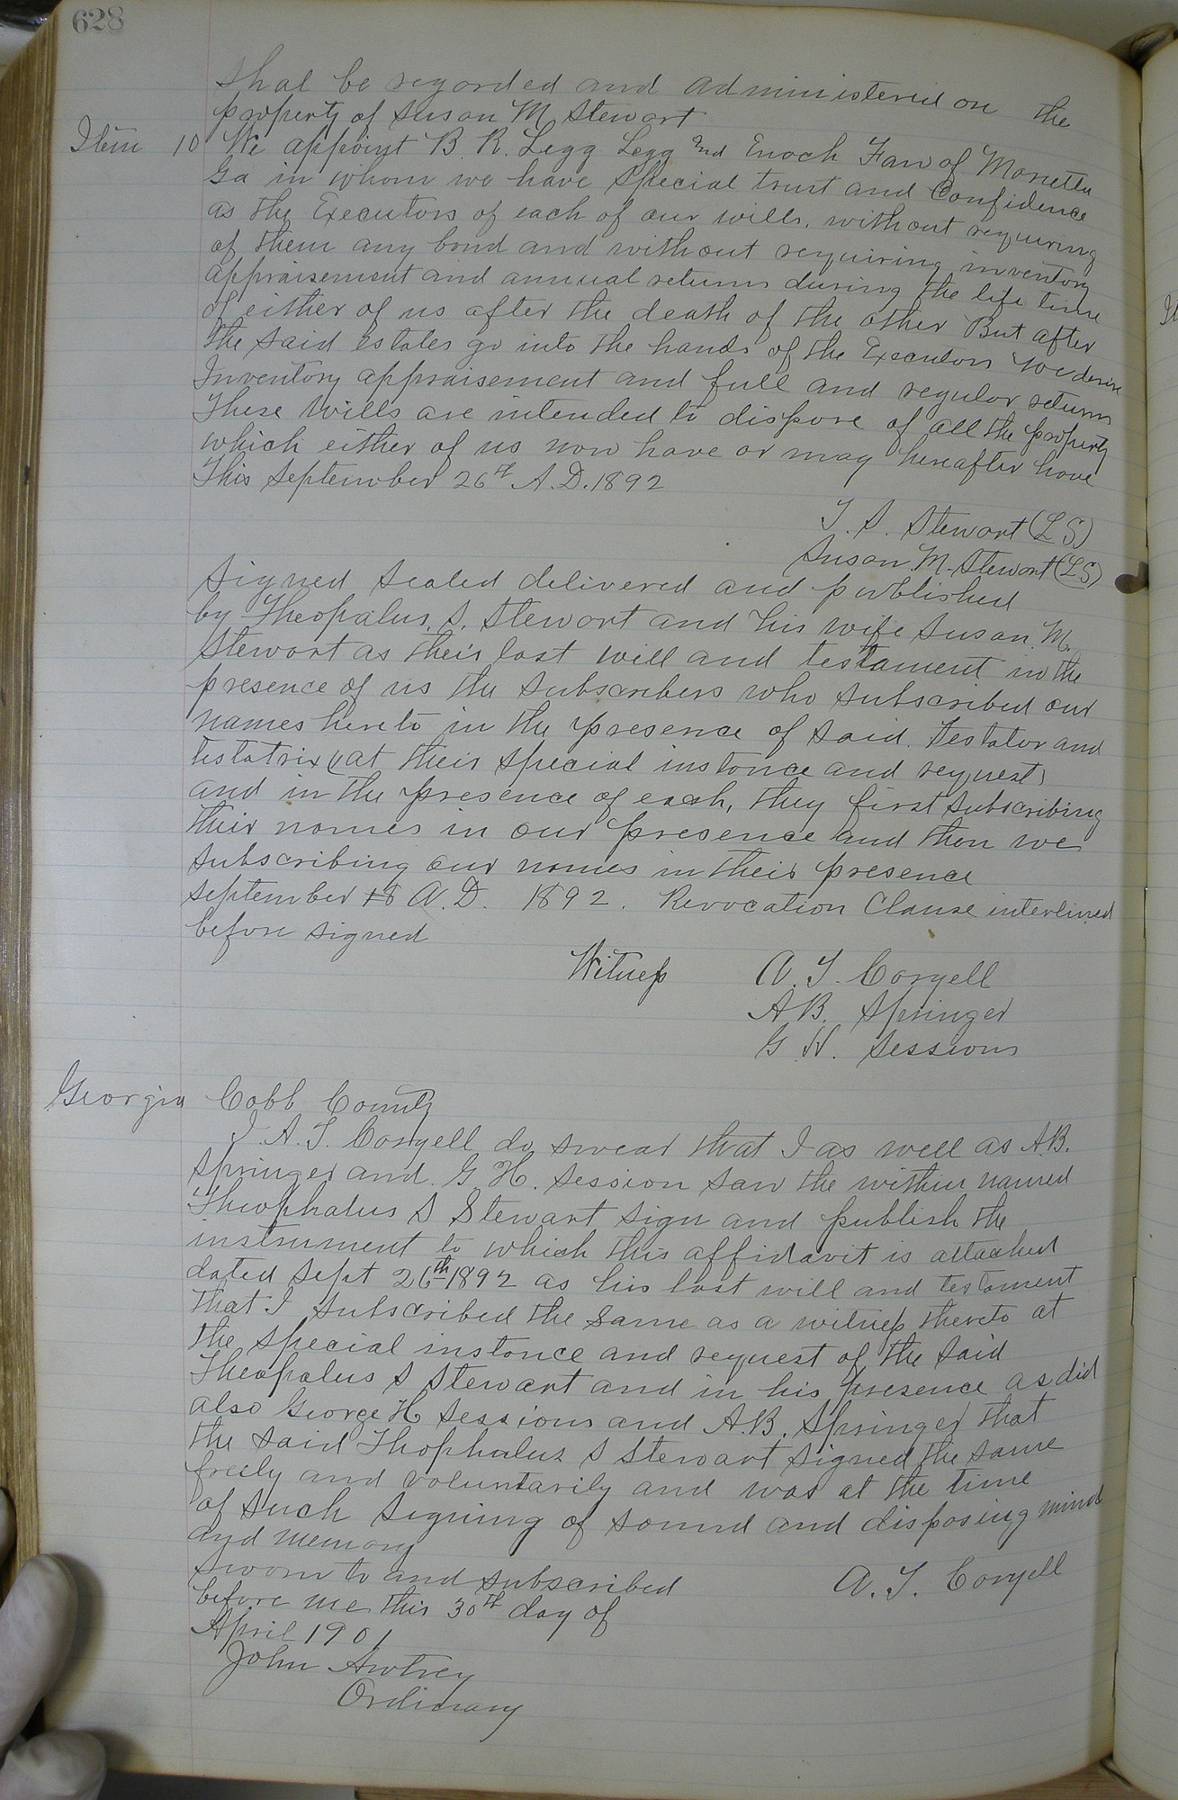 628
shal be regarded and administered on the
property of Susan M Stewart
Item 10 We appoint B. R. Legg Legg and Enoch Faw of Marietta
Ga in whom we have special trust and Confidence
as the Executors of each of our wills, without requiring
of them any bond and without requiring inventory
appraisement and annual returns during the life time
of either of us after the death of the other But after
the said estates go into the hands of the Executors We desire
Inventory appraisement and full and regular returns
These Wills are intended to dispose of all the property
which either of us now have or may hereafter have
This September 26th A.D. 1892
T. S. Stewart (LS)
Susan M. Stewart (LS)
Signed Sealed delivered and published
by Theophalus S. Stewart and his wife Susan M.
Stewart as their last will and testament in the
presence of us the subscribers who subscribed our
names hereto in the presence of said Testator and
testatrix (at their special instance and request)
and in the presence of each, they first subscribing
their names in our presence and then we
subscribing our names in their presence
September A.D. 1892. Revocation Clause interlined
before signed
Witness A. T. Coryell
A B. Springer
G H. Sessions
Georgia Cobb County
I A. T. Coryell do swear that I as well as A.B.
Springer and G. H. Session saw the within named
Theophalus S Stewart sign and publish the
instrument to which this affidavit is attached
dated Sept 26th 1892 as his last will and testament
that I subscribed the same as a witness thereto at
the special instance and request of the said
Theopalus S Stewart and in his presence as did
also George H Sessions and A.B. Springer that
the said Thophalus S Stewart signed the same
freely and voluntarily and was at the time
of such signing of sound and disposing mind
and memory
Sworn to and subscribed A. T. Coryell
before me this 30th day of
April 1901
John Awtrey
Ordinary